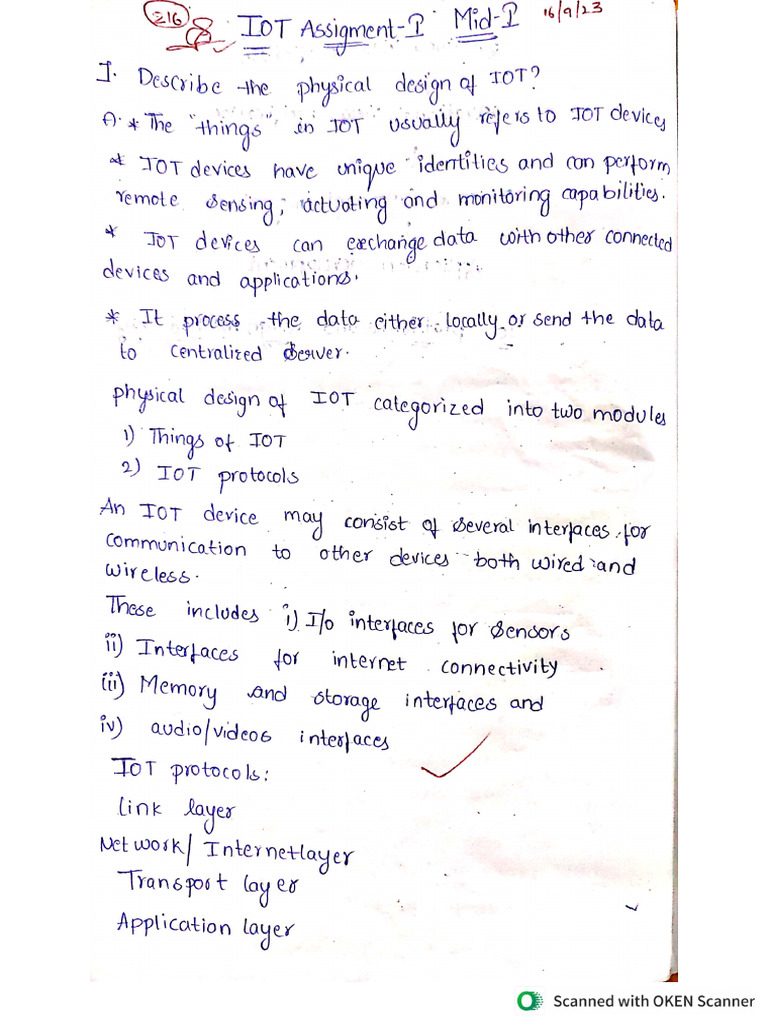 216
8 IOT Assigment-I Mid-I 16/9/23
I. Describe the physical design of IOT?
A. * The "things" in IOT usually refers to IOT devices
* IOT devices have unique identities and can perform
remote sensing, actuating and monitoring capabilities.
* IOT devices can exchange data with other connected
devices and applications.
* It process the data either locally or send the data
to centralized server.
physical design of IOT categorized into two modules
1) Things of IOT
2) IOT protocols
An IOT device may consist of several interfaces for
communication to other devices both wired and
wireless.
These includes i) I/o interfaces for sensors
ii) Interfaces for internet connectivity
iii) Memory and storage interfaces and
iv) audio/videos interfaces
IOT protocols:
Link layer
Network/ Internetlayer
Transport layer
Application layer
Scanned with OKEN Scanner